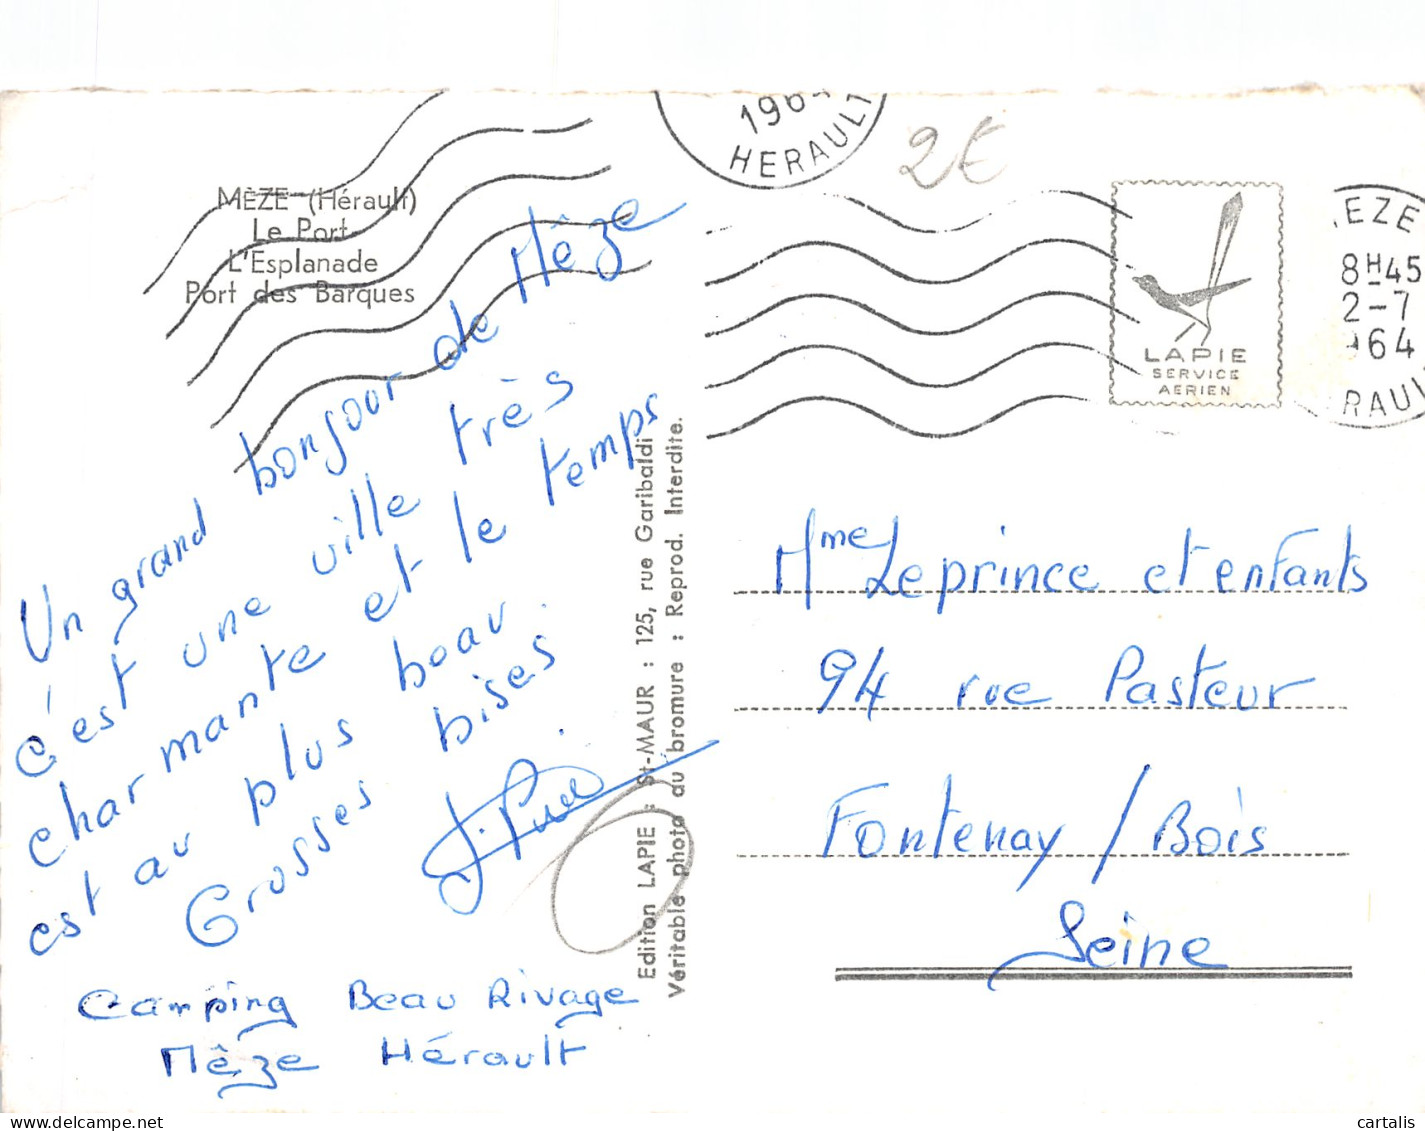 1964
HERAULT
2€
MÈZE (Hérault)
Le Port
L'Esplanade
Port des Barques
LAPIE
SERVICE
AERIEN
EZE
8H45
2-7
64
RAUL
Un grand bonjour de Mêze
c'est une ville très
charmante et le temps
est au plus beau.
Grosses bises
Camping Beau Rivage
Mêze Hérault
Edition LAPIE : St-MAUR : 125, rue Garibaldi
Véritable photo au bromure : Reprod. Interdite.
Mme Leprince et enfants
94 rue Pasteur
Fontenay / Bois
Seine
cartalis